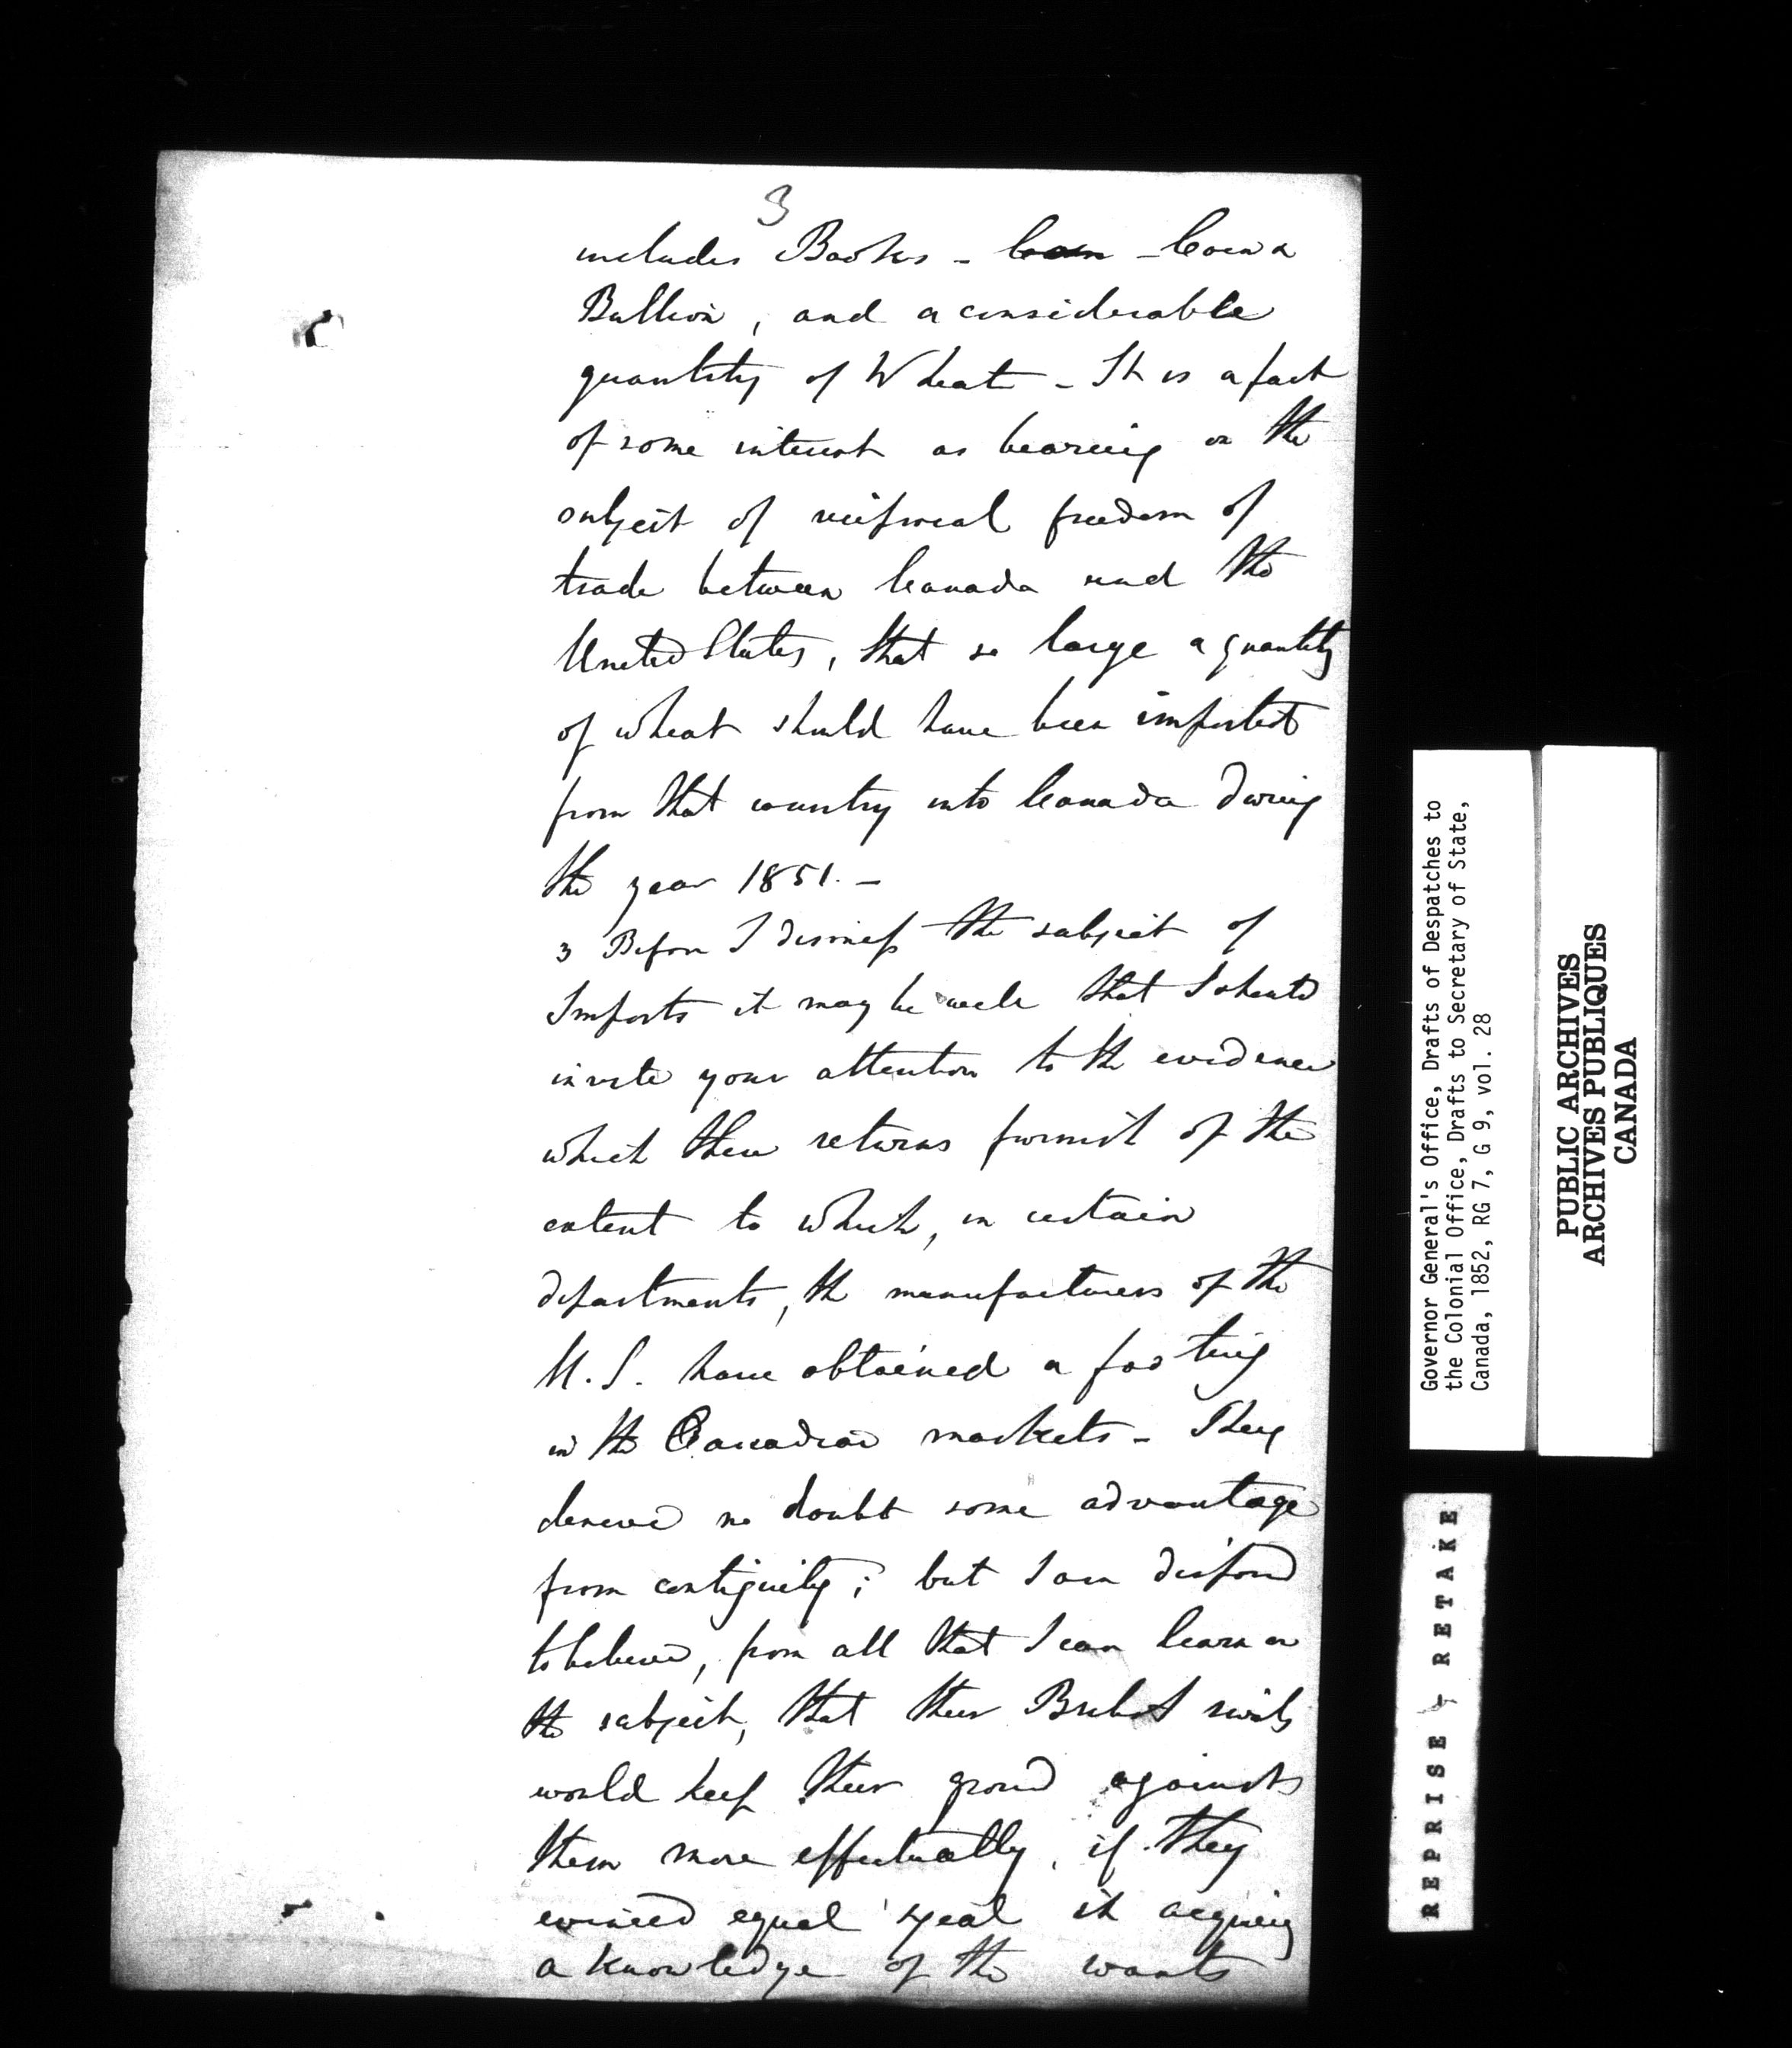 3
includes Books - Coin - Coin &
Bullion, and a considerable
quantity of Wheat - It is a fact
of some interest as bearing on the
subject of reciprocal freedom of
trade between Canada and the
United States, that so large a quantity
of wheat should have been imported
from that country into Canada during
the year 1851. -
3 Before I dismiss the subject of
Imports it may be well that I should
invite your attention to the evidence
which these returns furnish of the
extent to which, in certain
departments, the manufacturers of the
U.S. have obtained a footing
in the Canadian markets - They
derive no doubt some advantage
from contiguity; but I am disposed
to believe, from all that I can learn on
the subject, that their British rivals
would keep their ground against
them more effectually, if they
evinced equal zeal in acquiring
a knowledge of the wants
Governor General's Office, Drafts of Despatches to
the Colonial Office, Drafts to Secretary of State,
Canada, 1852, RG 7, G 9, vol. 28
PUBLIC ARCHIVES
ARCHIVES PUBLIQUES
CANADA
REPRISE - RETAKE